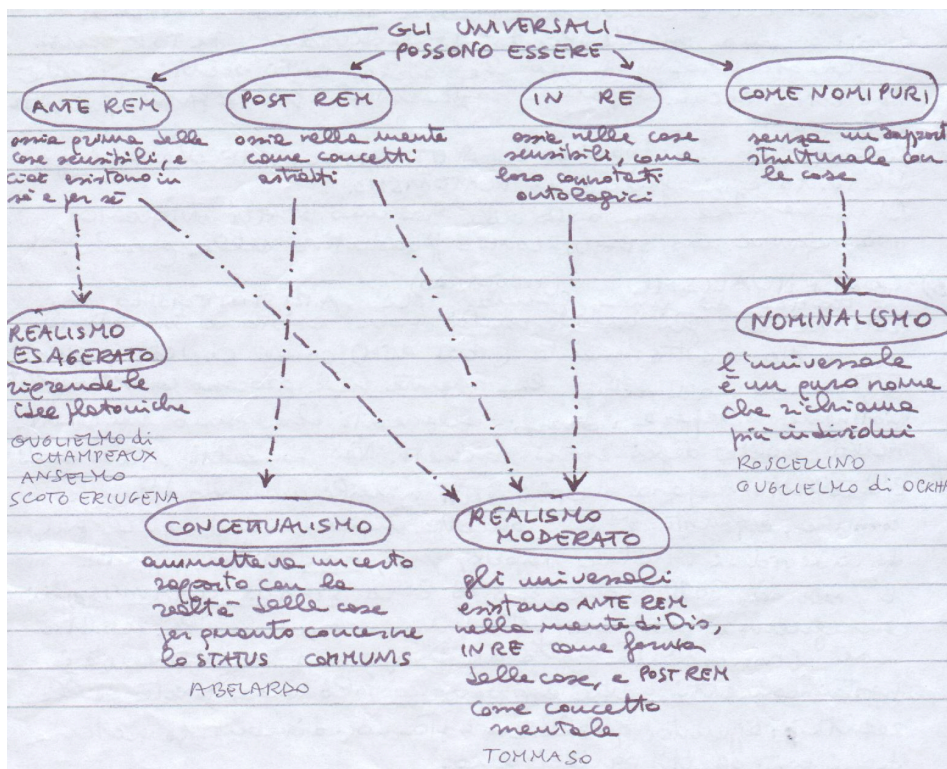 GLI UNIVERSALI
POSSONO ESSERE
ANTE REM
ossia prima delle
cose sensibili, e
cioè esistono in
sé e per sé
POST REM
ossia nella mente
come concetti
astratti
IN RE
ossia nelle cose
sensibili, come
loro connotati
ontologici
COME NOMI PURI
senza un rapporto
strutturale con
le cose
REALISMO
ESAGERATO
riprende le
idee platoniche
GUGLIELMO di
CHAMPEAUX
ANSELMO
SCOTO ERIUGENA
NOMINALISMO
l'universale
è un puro nome
che richiama
più individui
ROSCELLINO
GUGLIELMO di OCKHA
CONCETTUALISMO
ammetteva un certo
rapporto con la
realtà delle cose
per quanto concerne
lo STATUS COMMUNIS
ABELARDO
REALISMO
MODERATO
gli universali
esistono ANTE REM
nella mente di Dio,
IN RE come forma
delle cose, e POST REM
come concetto
mentale
TOMMASO